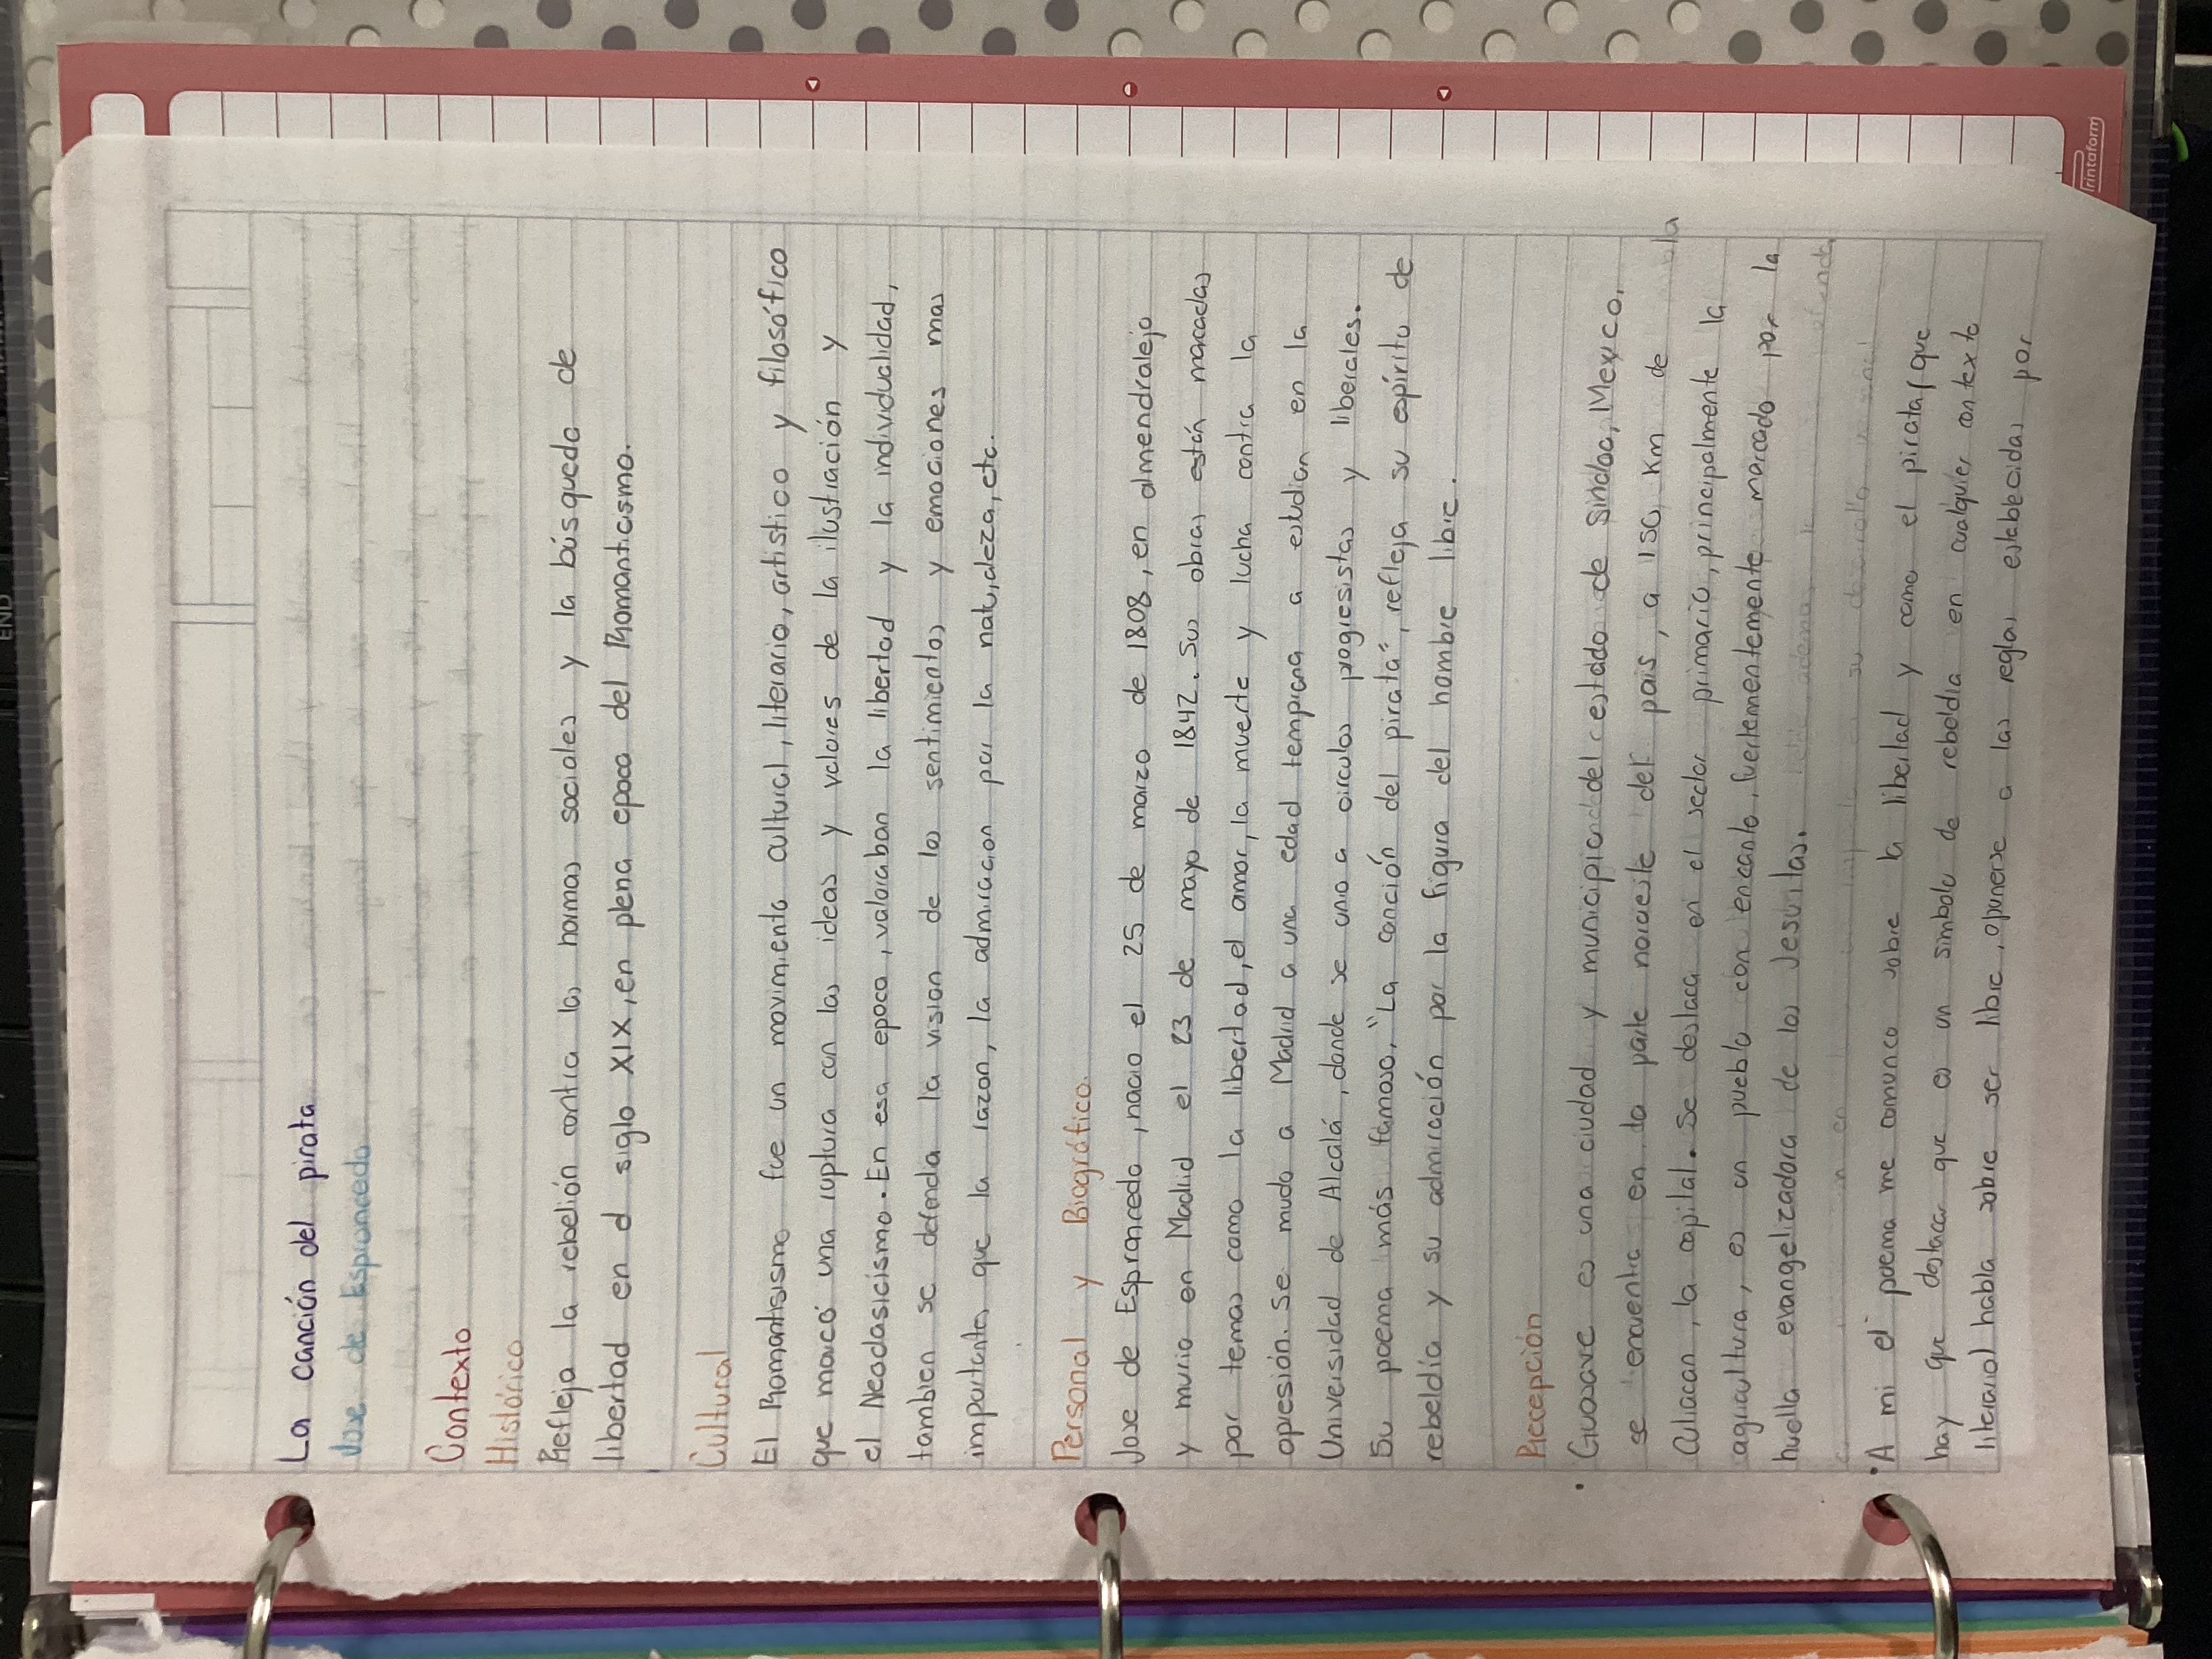 La canción del pirata
Jose de Espronceda
Contexto
Histórico
Refleja la rebelión contra las normas sociales y la búsqueda de
libertad en el siglo XIX, en plena epoca del Romanticismo.
Cultural
El Romantisismo fue un movimiento cultural, literario, artistico y filosófico
que marcó una ruptura con las ideas y valores de la ilustración y
el Neoclasicismo. En esa epoca, valoraban la libertad y la individualidad,
tambien se defendia la vision de los sentimientos y emociones mas
importantes que la razon, la admiracion por la naturaleza, etc.
Personal y Biográfico.
Jose de Espronceda, nacio el 25 de marzo de 1808, en almendralejo
y murio en Madrid el 23 de mayo de 1842. Sus obras están marcadas
por temas como la libertad, el amor, la muerte y lucha contra la
opresión. Se mudo a Madrid a una edad temprana a estudiar en la
Universidad de Alcalá, donde se uno a circulos progresistas y liberales.
Su poema más famoso, "La canción del pirata", refleja su espíritu de
rebeldía y su admiración por la figura del hombre libre.
Recepción
• Guasave es una ciudad y municipio del estado de sinaloa, Mexico,
se encuentra en la parte noroeste del pais, a 150 km de
Culiacan, la capital. Se destaca en el sector primario, principalmente la
agricultura, es un pueblo con encanto, fuertementemente marcado por la
huella evangelizadora de los Jesuitas.
• A mi el poema me comunico sobre la libertad y como el pirata, que
hay que destacar que es un simbolo de rebeldia en cualquier contexto
literario, habla sobre ser libre, oponerse a las reglas establecidas por
Printaform
END